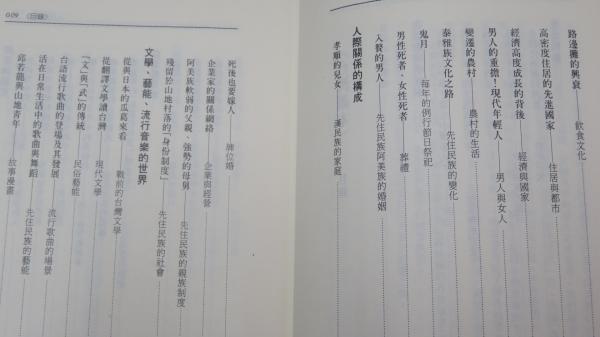 路邊攤的興衰……飲食文化
高密度住居的先進國家……住居與都市
經濟高度成長的背後……經濟與國家
男人的重擔！現代年輕人……男人與女人
變遷的農村……農村的生活
泰雅族文化之路……先住民族的變化
鬼月……每年的例行節日祭祀
男性死者、女性死者……葬禮
人際關係的構成
入贅的男人……先住民族阿美族的婚姻
孝順的兒女……漢民族的家庭
009 〈目錄〉
死後也要嫁人……牌位婚
企業家的關係網絡……企業與經營
阿美族軟弱的父親、強勢的母舅……先住民族的親族制度
殘留於山地村落的「身份制度」……先住民族的社會
文學、藝能、流行音樂的世界
從與日本的瓜葛來看……戰前的台灣文學
從翻譯文學讀台灣……現代文學
「文」與「武」的傳統……民俗藝能
台語流行歌曲的登場及其發展……流行歌曲的場景
活在日常生活中的歌曲與舞蹈……先住民族的藝能
邱若龍與山地青年……故事漫畫